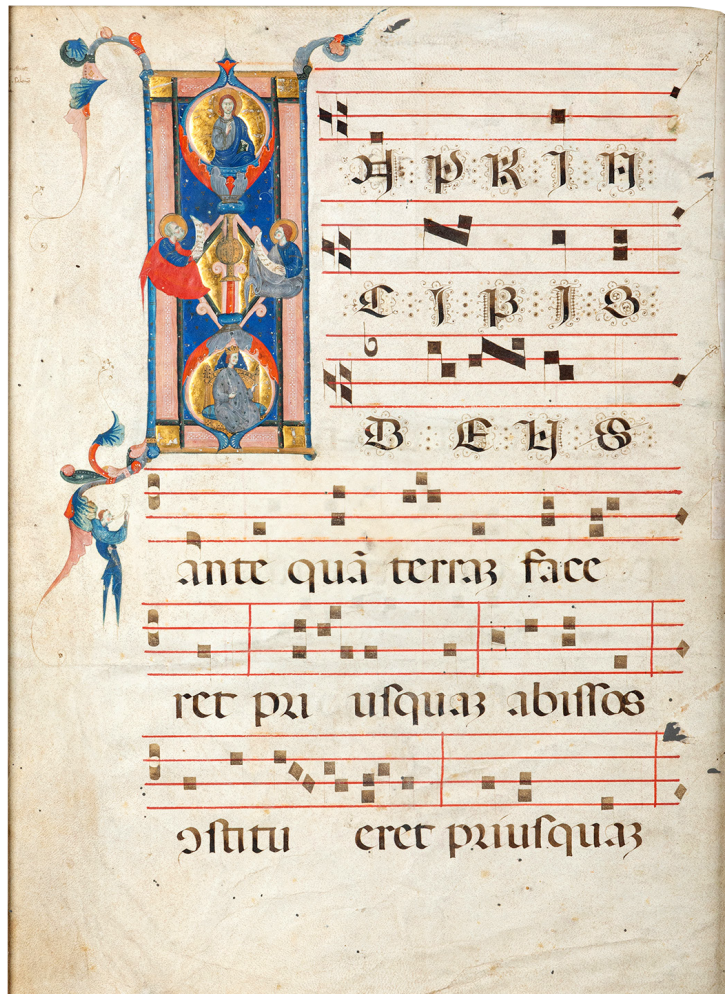 IN PRIN
CIPIO
DEUS
ante quā terraꝫ face
ret pri uſquaꝫ abiſſos
ꝯſtitu eret priuſquaꝫ